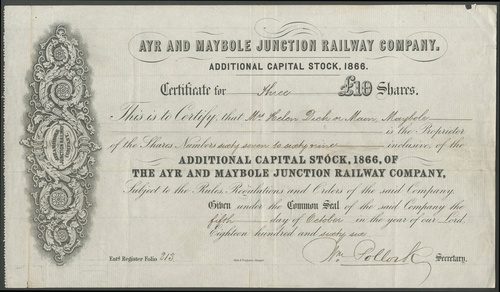 AYR AND MAYBOLE JUNCTION RAILWAY COMPANY.
ADDITIONAL CAPITAL STOCK, 1866.
Certificate for three £10 Shares.
This is to Certify, that Mrs Helen Dick or Main, Maybole
is the Proprietor
of the Shares Numbers sixty seven to sixty nine inclusive, of the
ADDITIONAL CAPITAL STOCK, 1866, OF
THE AYR AND MAYBOLE JUNCTION RAILWAY COMPANY,
Subject to the Rules, Regulations and Orders of the said Company.
Given under the Common Seal of the said Company the
fifth day of October in the year of our Lord,
Eighteen hundred and sixty six
Wm Pollock Secretary.
Entd. Register Folio 213